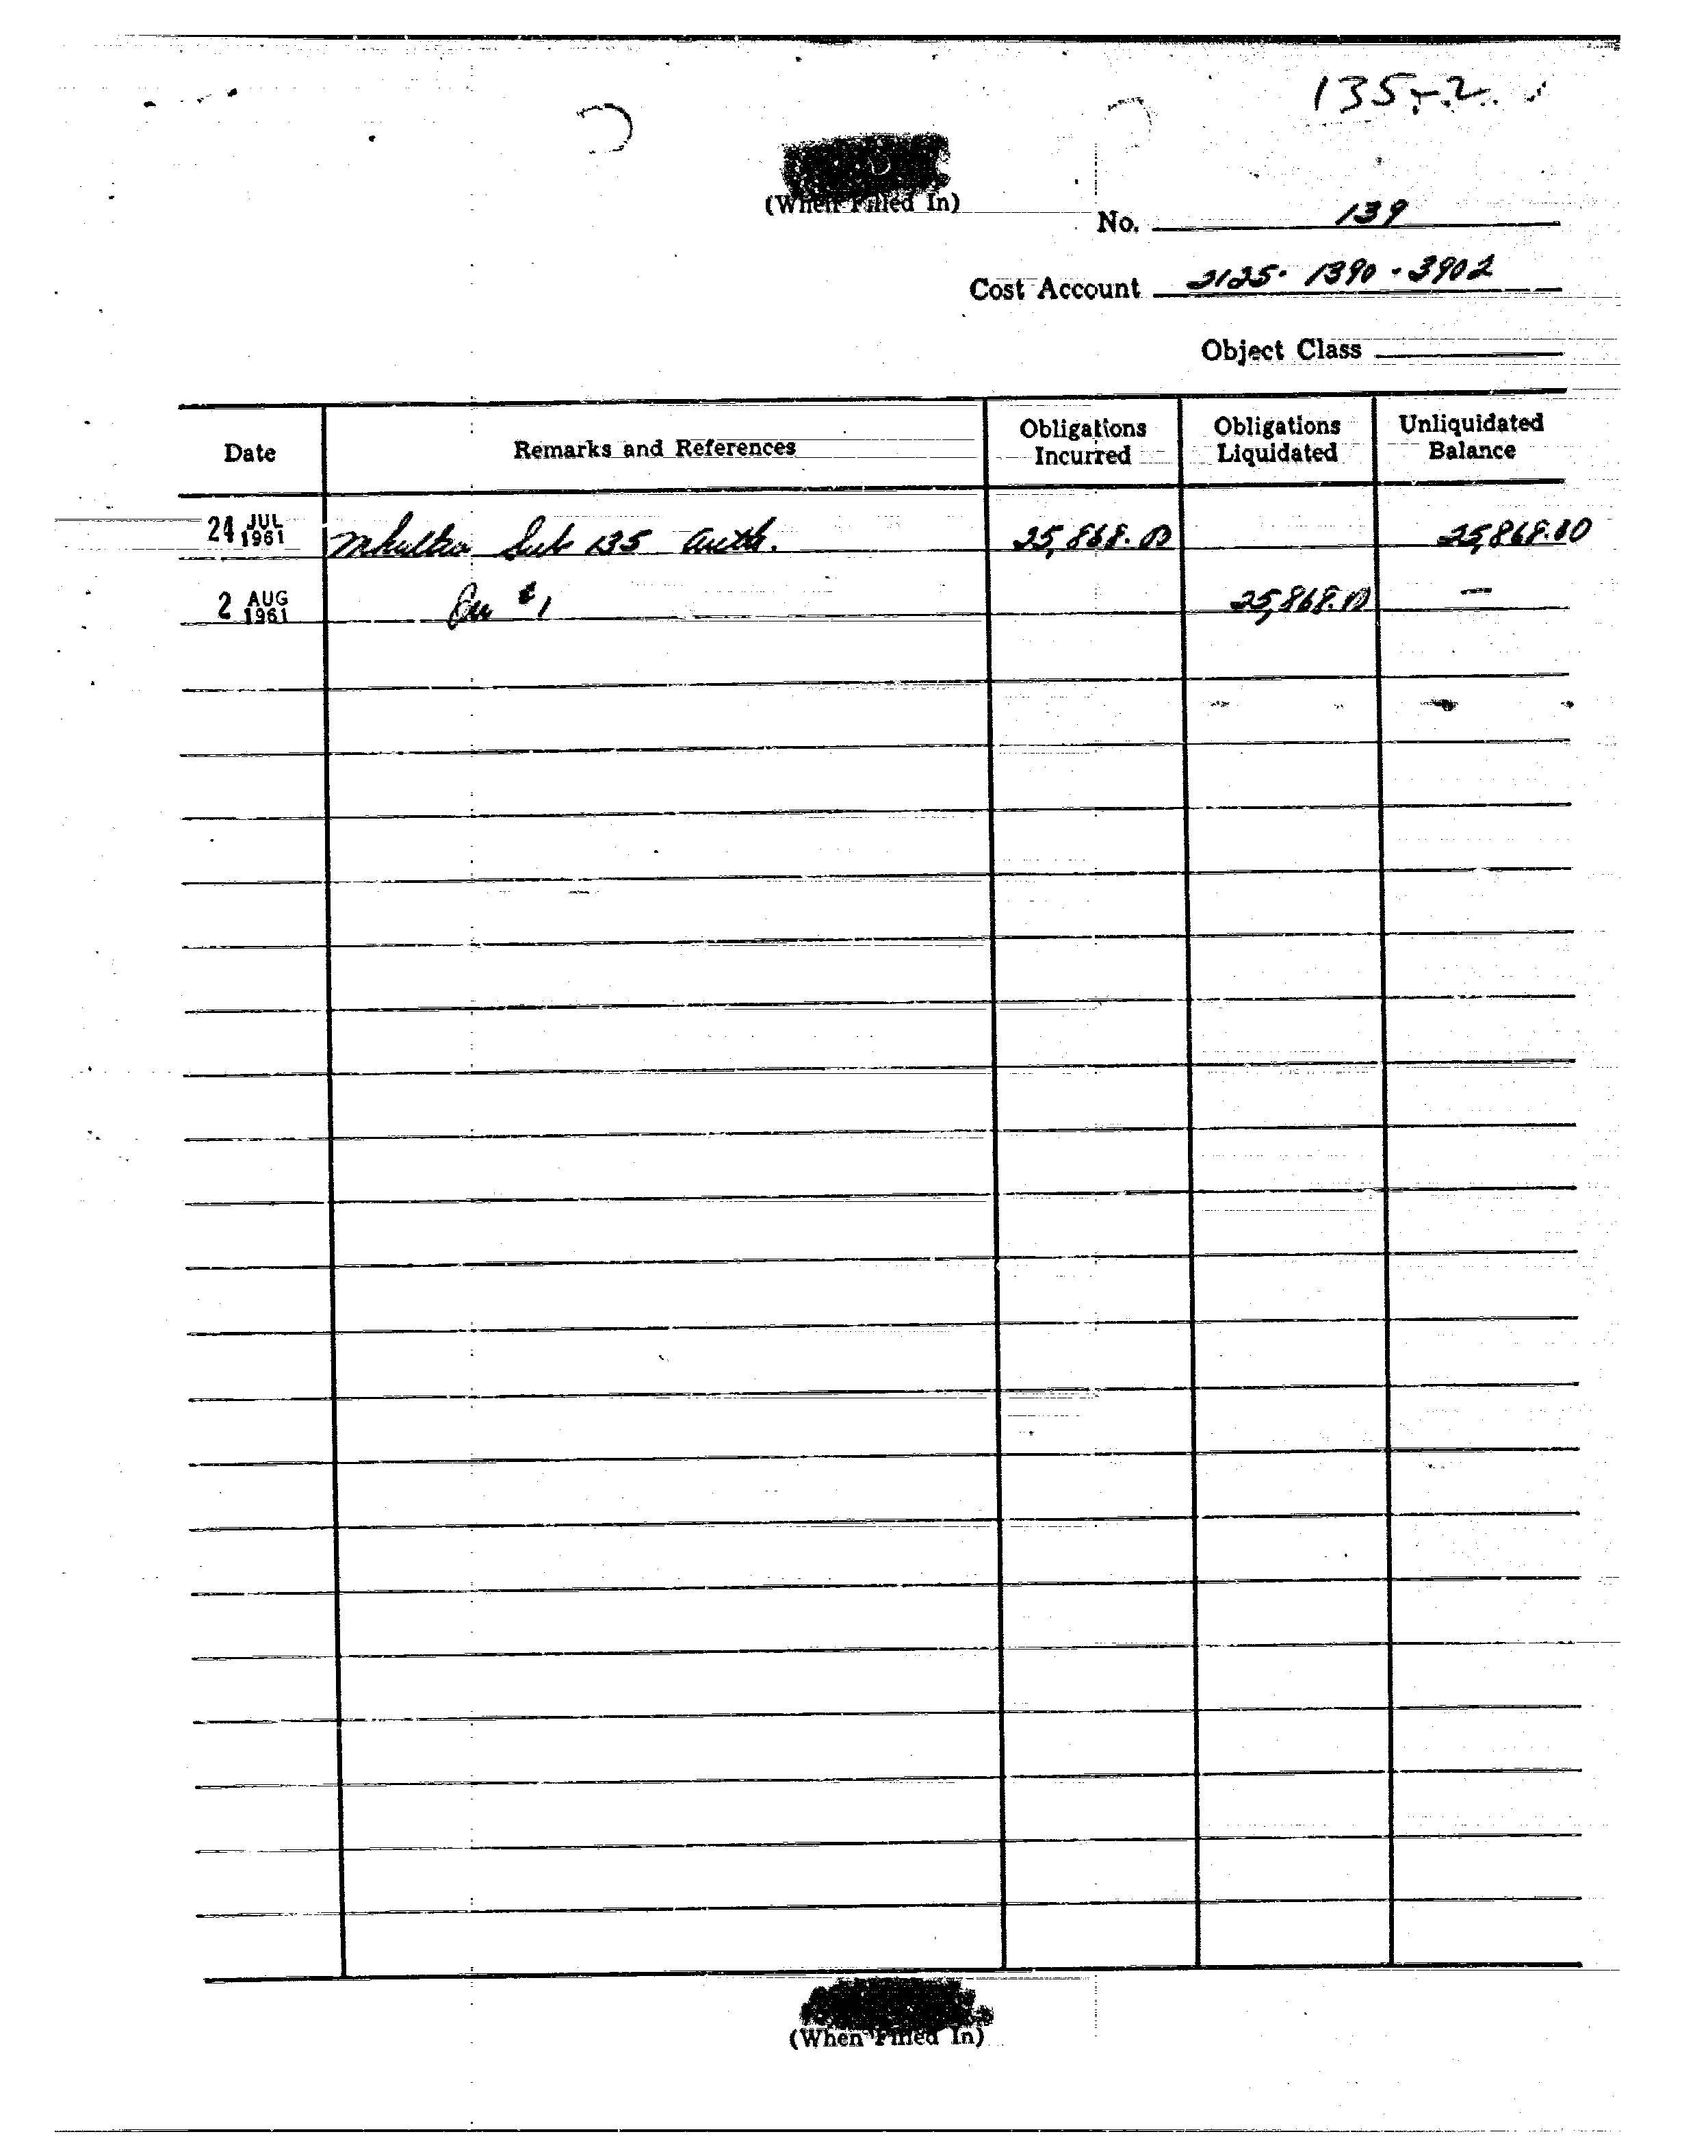 135-2
(When Filled In)
No. 139
Cost Account 2125-1390-3902
Object Class
Date Remarks and References Obligations Incurred Obligations Liquidated Unliquidated Balance
24 JUL 1961 Mkultra Sub 135 auth. 25,868.00 25,868.00
2 AUG 1961 #1 25,868.00 —
(When Filled In)